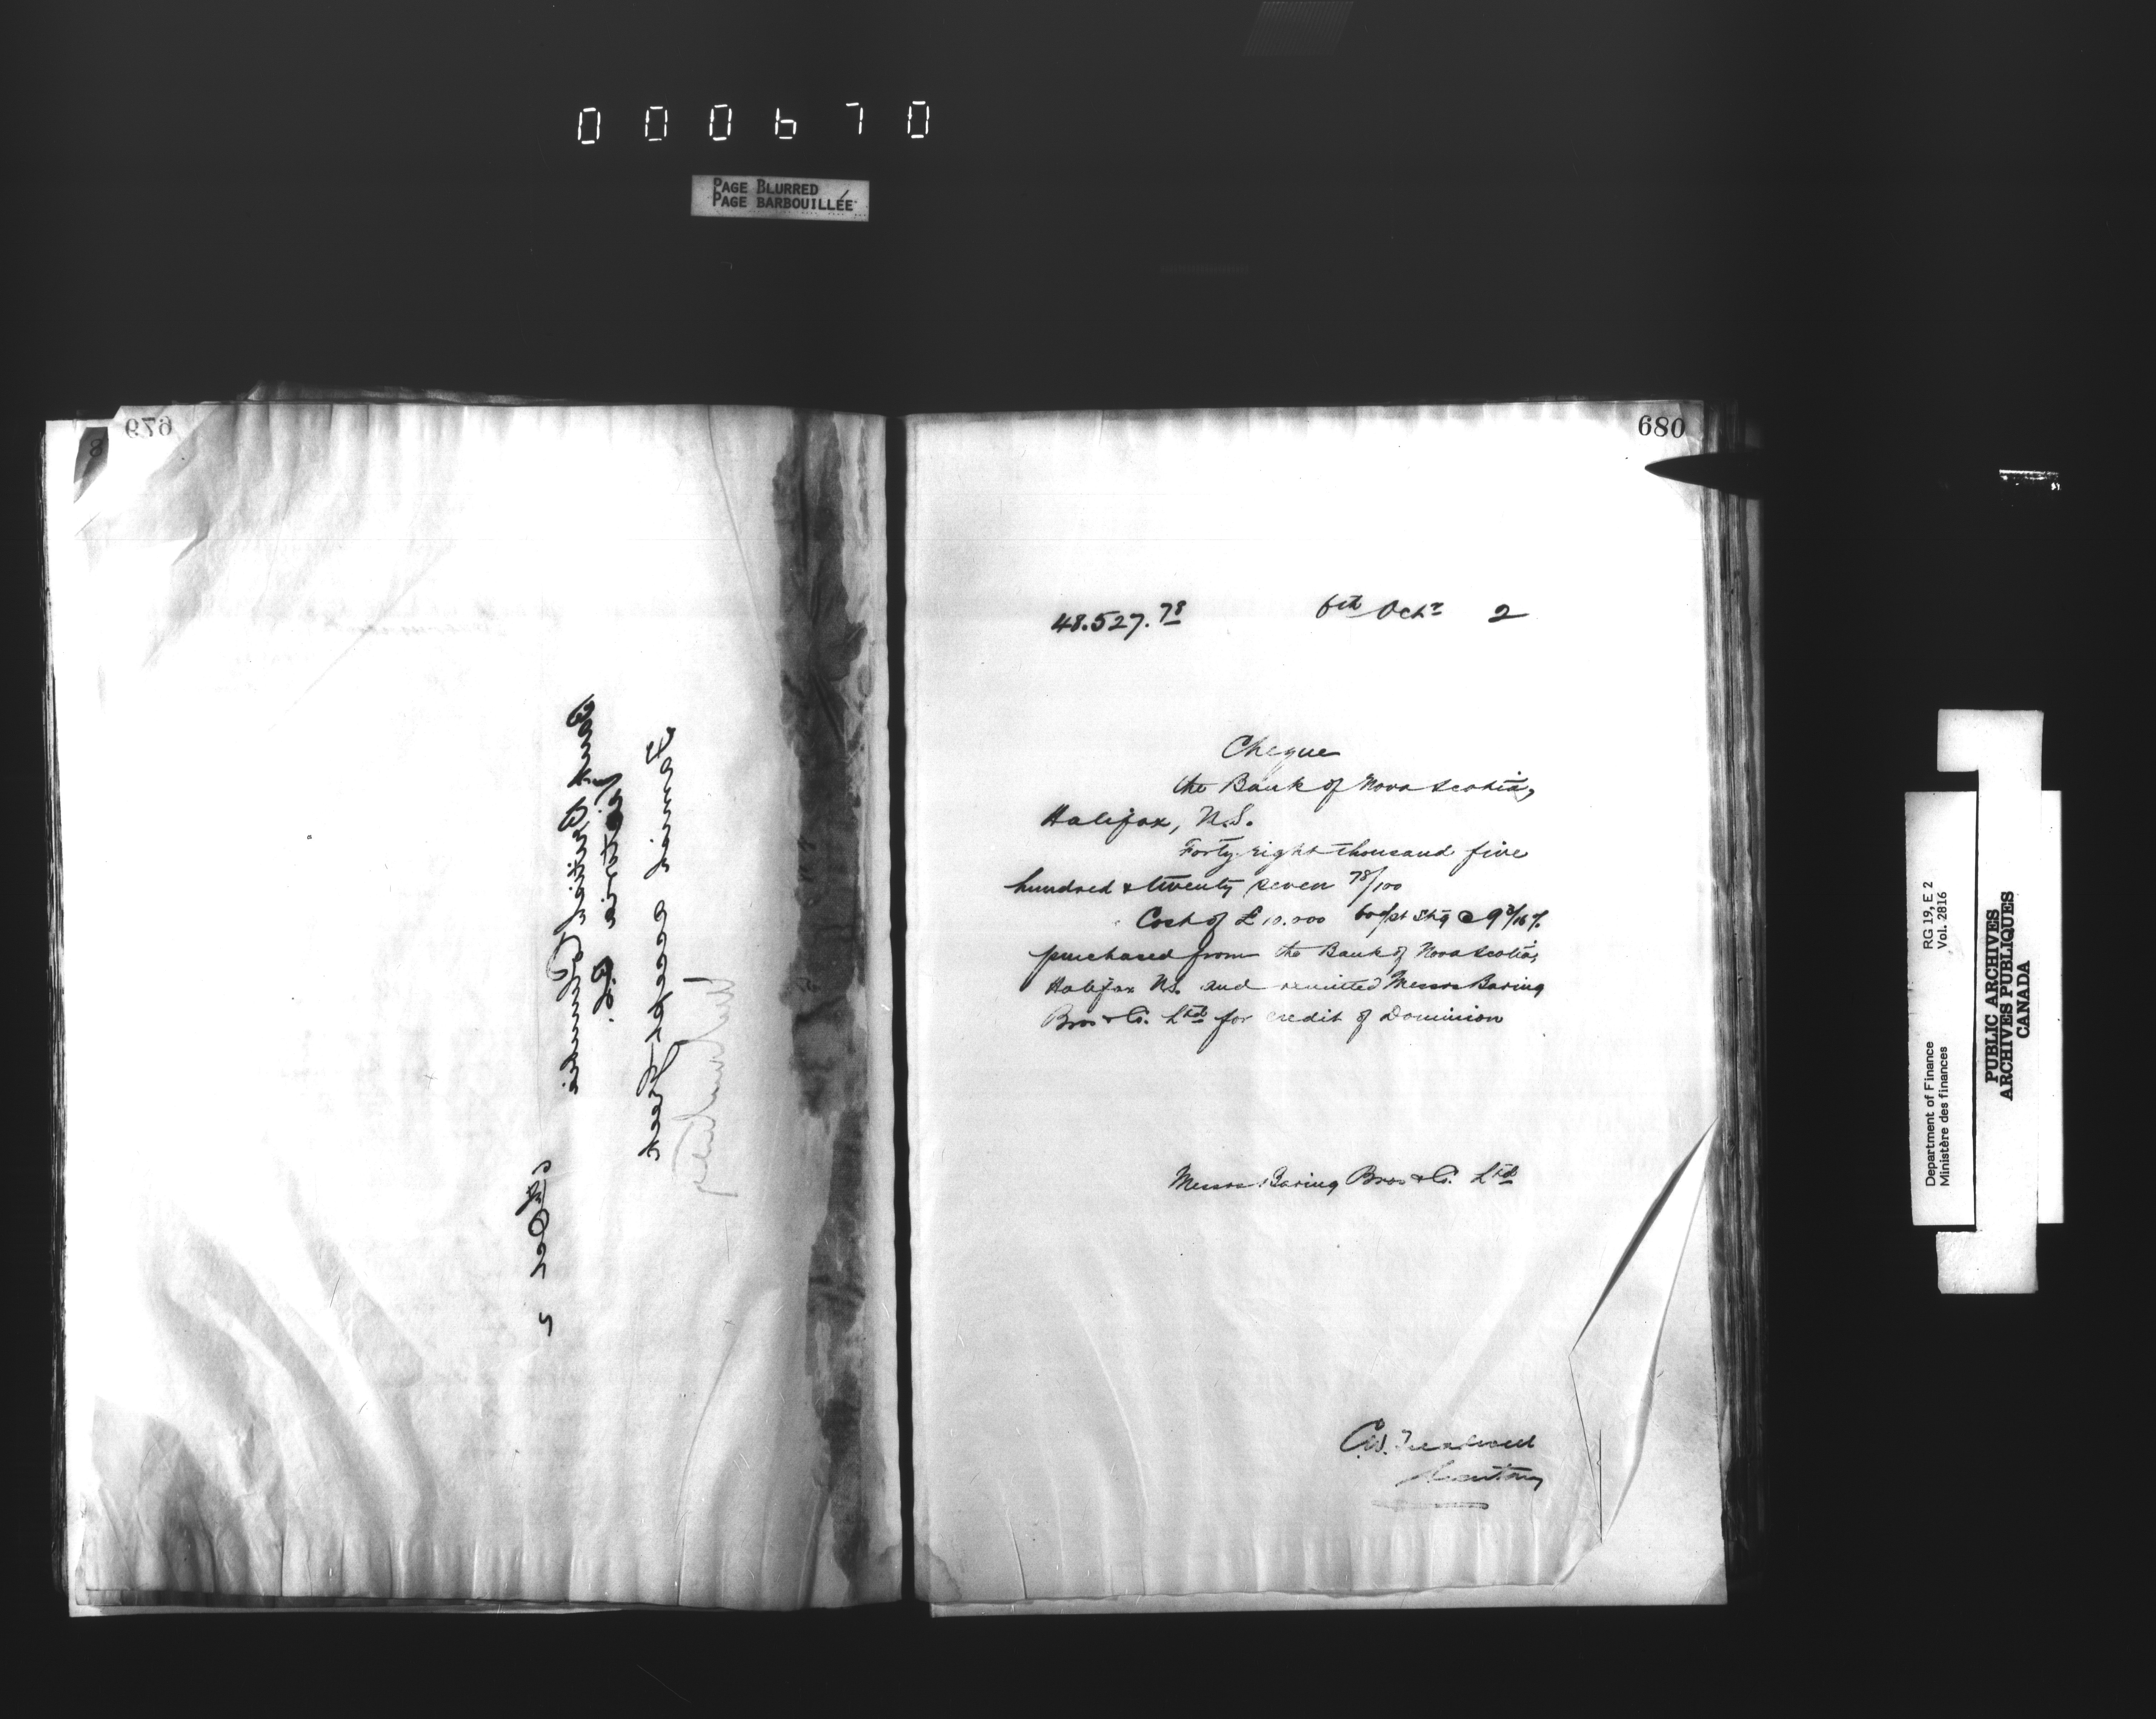 000670
PAGE BLURRED
PAGE BARBOUILLÉE
679
Bank British Columbia
Victoria B.C.
Farmial accept
6th Oct 2
680
48.527.78 6th Octr 2
Cheque
the Bank of Nova Scotia,
Halifax, N.S.
Forty eight thousand five
hundred & twenty seven 78/100
Cost of £10.000 60d/st Stg @ 9 3/16 %
purchased from the Bank of Nova Scotia,
Halifax N.S. and remitted Messrs Baring
Bros & Co. Ltd for credit of Dominion
Messrs Baring Bros & Co. Ltd
C.W. Treadwell
Accountant
RG 19, E 2
Vol. 2816
Department of Finance
Ministère des finances
PUBLIC ARCHIVES
ARCHIVES PUBLIQUES
CANADA